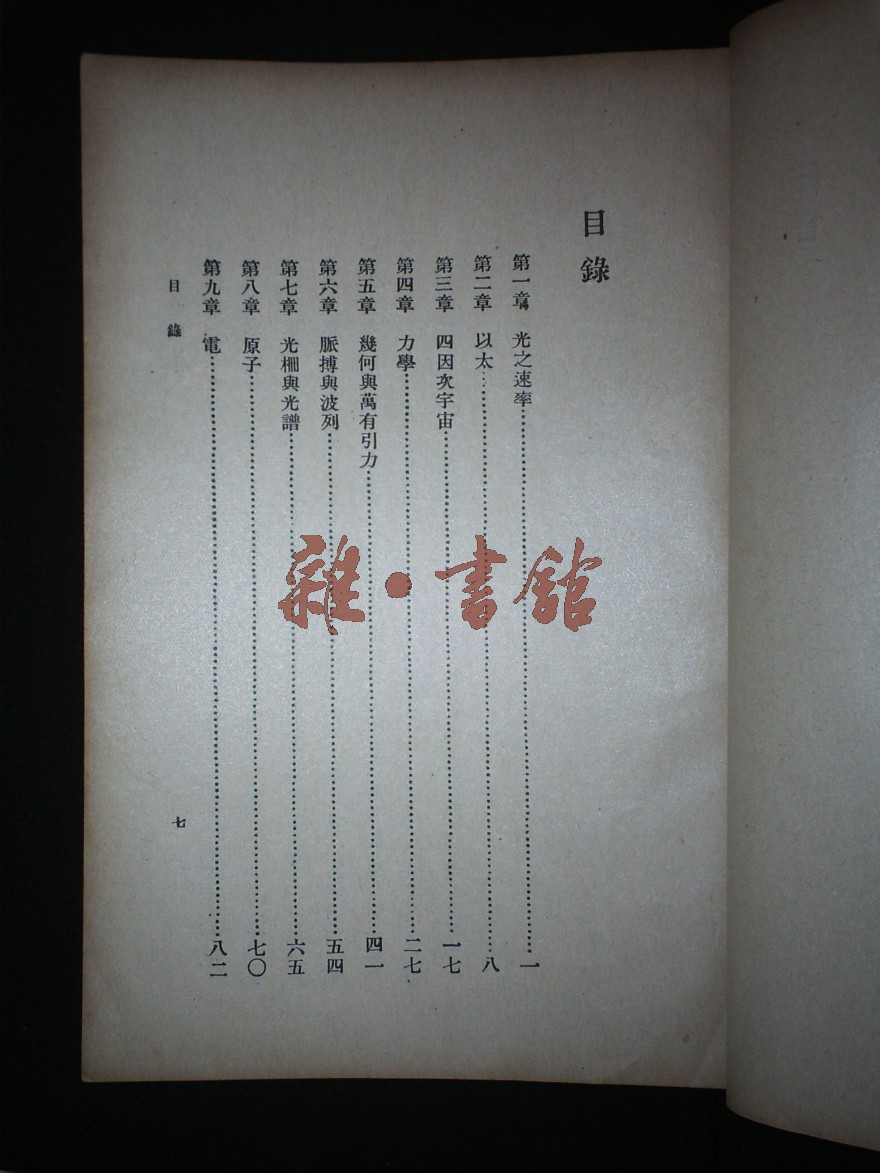 目錄
第一章 光之速率……一
第二章 以太……八
第三章 四因次宇宙……一七
第四章 力學……二七
第五章 幾何與萬有引力……四一
第六章 脈搏與波列……五四
第七章 光柵與光譜……六五
第八章 原子……七〇
第九章 電……八二
目錄
七
雜·書館